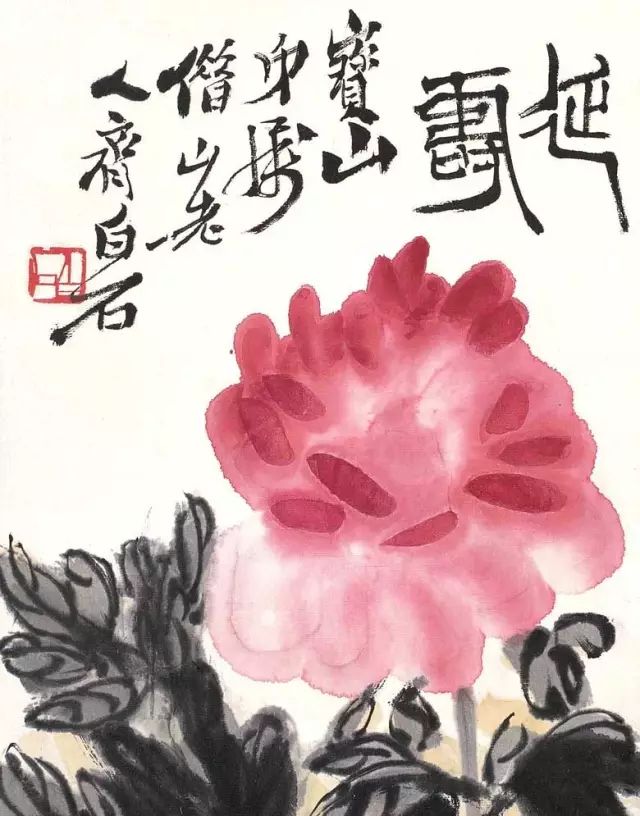 延壽
寶山
借山老
人齊白石